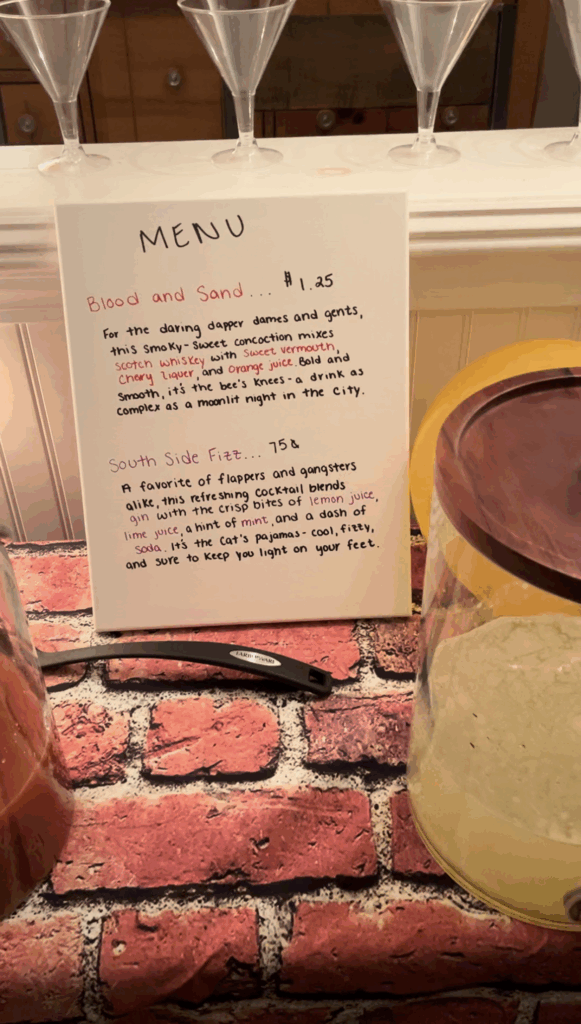 MENU
Blood and Sand... $1.25
For the daring dapper dames and gents,
this smoky-sweet concoction mixes
Scotch whiskey with sweet vermouth,
Cherry liquer, and orange juice. Bold and
Smooth, it's the bee's knees - a drink as
complex as a moonlit night in the city.
South Side Fizz... 75¢
A favorite of flappers and gangsters
alike, this refreshing cocktail blends
gin with the crisp bites of lemon juice,
lime juice, a hint of mint, and a dash of
Soda. It's the cat's pajamas - cool, fizzy,
and sure to keep you light on your feet.